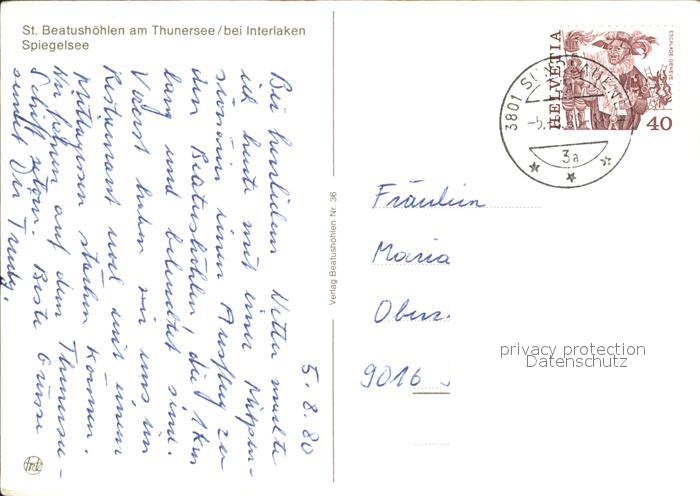 St. Beatushöhlen am Thunersee/bei Interlaken
Spiegelsee
5. 8. 80
Bei herrlichem Wetter machte
ich heute mit einer Mitpen-
sionärin einen Ausflug zu
den Beatushöhlen, die 1 km
lang und beleuchtet sind.
Vorerst haben wir uns im
Restaurant noch mit einem
Mittagessen stärken können.
Wir fahren auf dem Thunersee-
Schiff retour. Beste Grüsse
sendet Dir Trudy.
Verlag Beatushöhlen Nr. 36
HELVETIA
ESCALADE GENEVE
40
3801
-5.
3a
Fräulein
Maria
Obers
9016
privacy protection
Datenschutz